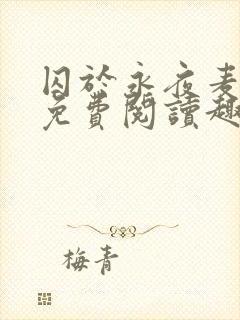 囚於永夜麦
免費閱讀趣
梅青